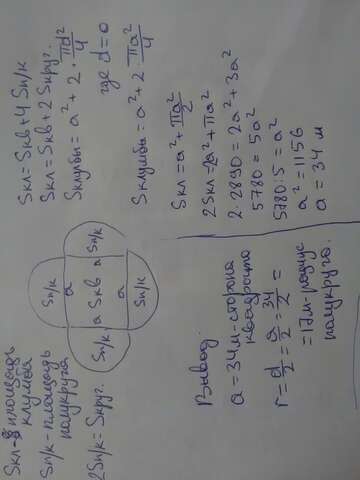 Sкл - площадь
клумбы
Sп/к - площадь
полукруга
2Sп/к = Sкруг.
Sп/к
a
Sп/к a Sкв a Sп/к
a
Sп/к
Sкл = Sкв + 4 Sп/к
Sкл = Sкв + 2 Sкруг.
Sклумбы = a² + 2 · πd²/4
где d = a
Sклумбы = a² + 2 πa²/4
Sкл = a² + πa²/2
2Sкл = 2a² + πa²
2 · 2890 = 2a² + 3a²
5780 = 5a²
5780 : 5 = a²
a² = 1156
a = 34 м
Вывод:
a = 34 м - сторона
квадрата
r = d/2 = a/2 = 34/2 =
= 17 м - радиус
полукруга.